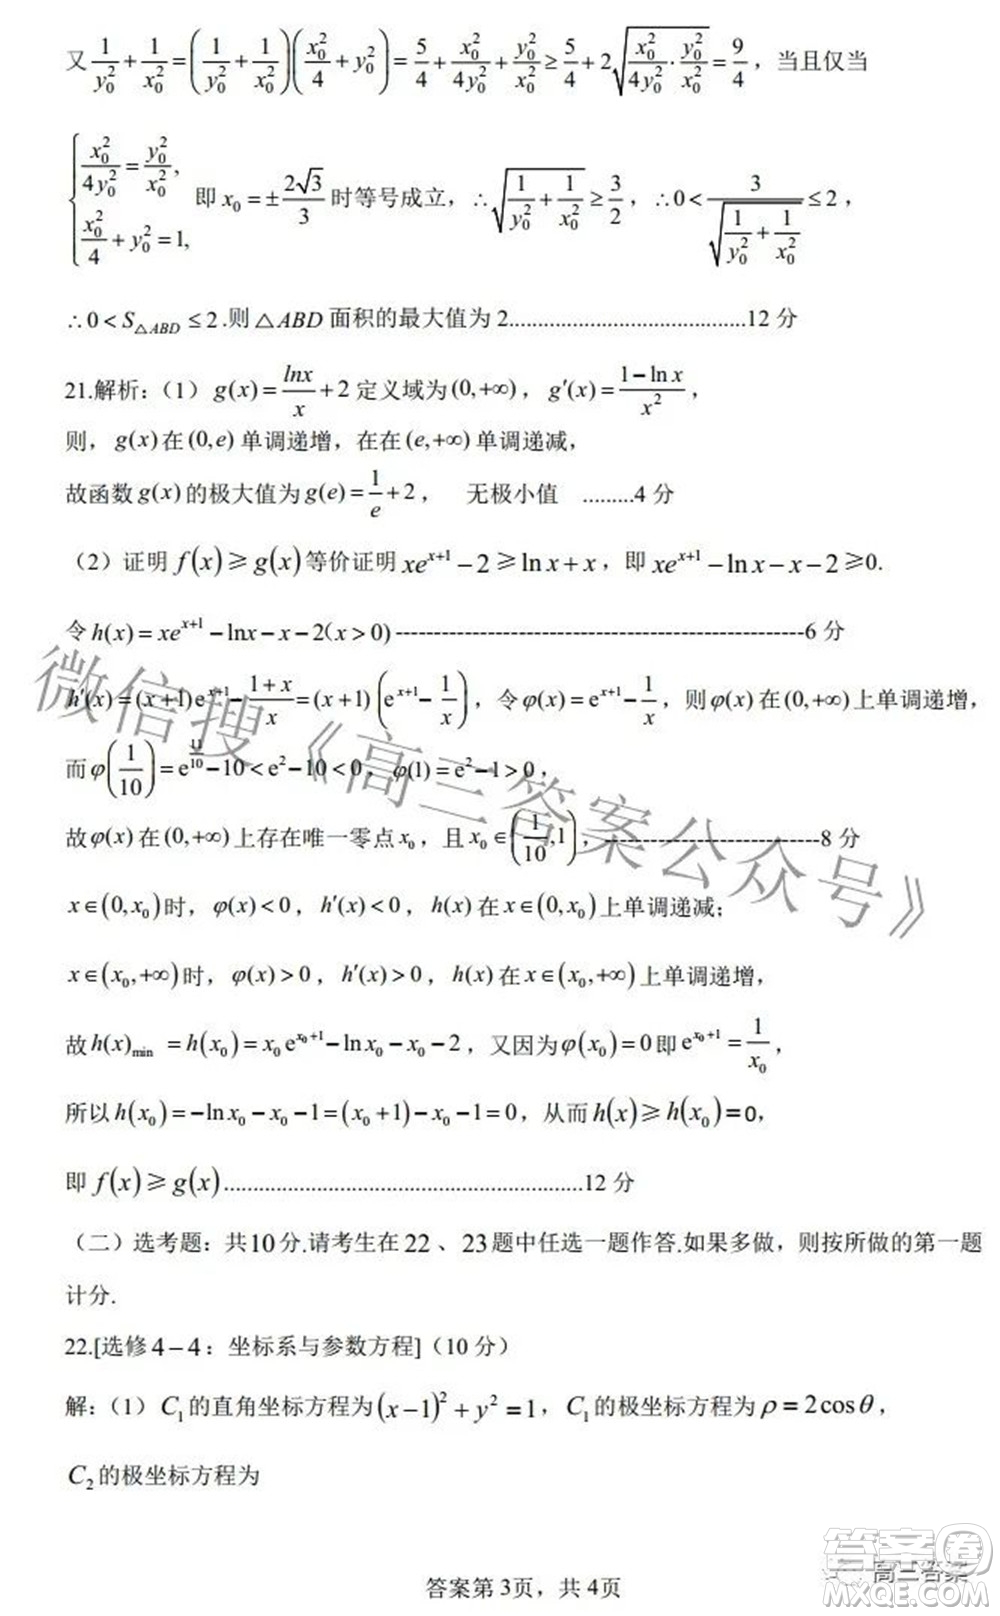 又 1/y₀² + 1/x₀² = (1/y₀² + 1/x₀²)(x₀²/4 + y₀²) = 5/4 + x₀²/4y₀² + y₀²/x₀² ≥ 5/4 + 2√(x₀²/4y₀² · y₀²/x₀²) = 9/4，当且仅当
{x₀²/4y₀² = y₀²/x₀², x₀²/4 + y₀² = 1, 即 x₀ = ±2√3/3 时等号成立，∴√(1/y₀² + 1/x₀²) ≥ 3/2，∴0 < 3/√(1/y₀² + 1/x₀²) ≤ 2，
∴0 < S△ABD ≤ 2.则△ABD 面积的最大值为 2.........................................12 分
21.解析：（1）g(x) = lnx/x + 2 定义域为(0,+∞)，g′(x) = (1−ln x)/x²，
则，g(x)在(0,e)单调递增，在在(e,+∞)单调递减，
故函数g(x)的极大值为g(e) = 1/e + 2， 无极小值 .........4 分
（2）证明 f(x) ⩾ g(x)等价证明 xe^(x+1) − 2 ⩾ ln x + x，即 xe^(x+1) − ln x − x − 2 ⩾ 0.
令h(x) = xe^(x+1) − lnx − x − 2(x > 0)-----------------------------------------------------6 分
h′(x) = (x+1)e^(x+1) − (1+x)/x = (x+1)(e^(x+1) − 1/x)，令φ(x) = e^(x+1) − 1/x，则φ(x)在(0,+∞)上单调递增，
而φ(1/10) = e^(11/10) − 10 < e² − 10 < 0，φ(1) = e² − 1 > 0，
故φ(x)在(0,+∞)上存在唯一零点x₀，且x₀ ∈ (1/10,1)，----------------------------8 分
x ∈ (0,x₀)时，φ(x) < 0，h′(x) < 0，h(x)在x ∈ (0,x₀)上单调递减；
x ∈ (x₀,+∞)时，φ(x) > 0，h′(x) > 0，h(x)在x ∈ (x₀,+∞)上单调递增，
故h(x)min = h(x₀) = x₀e^(x₀+1) − ln x₀ − x₀ − 2，又因为φ(x₀) = 0即e^(x₀+1) = 1/x₀，
所以h(x₀) = −ln x₀ − x₀ − 1 = (x₀+1) − x₀ − 1 = 0，从而h(x) ⩾ h(x₀) = 0，
即 f(x) ⩾ g(x)..............................................................12 分
（二）选考题：共10分.请考生在 22 、23题中任选一题作答.如果多做，则按所做的第一题
计分.
22.[选修 4－4：坐标系与参数方程]（10 分）
解：（1）C₁的直角坐标方程为(x−1)² + y² = 1，C₁的极坐标方程为ρ = 2cosθ，
C₂的极坐标方程为
答案第 3页，共 4页
微信搜《高三答案公众号》
高三答案
答案卷
MXQE.COM